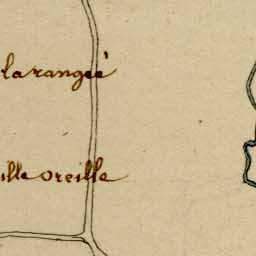 larangeé
ille oreille